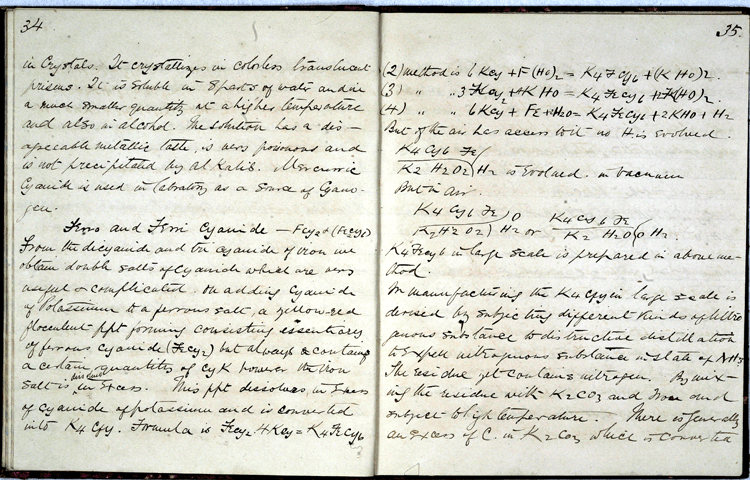 34
in Crystals. It crystallizes in colorless translucent
prisms. It is soluble in 8 parts of water and in
a much smaller quantity at a higher temperature
and also in alcohol. The solution has a dis-
agreeable metallic taste, is very poisonous and
is not precipitated by alkalis. Mercuric
Cyanide is used in labratory as a source of Cyano-
gen.
Ferro and Ferri Cyanide — Fcy2 & (Fe2cy6)
From the dicyanide and tri cyanide of iron we
obtain double salts of cyanide which are very
useful & complicated. On adding Cyanide
of Potassium to a ferrous salt, a yellow-red
flocculent ppt forming consisting essentially
of ferrous cyanide (Fecy2) but always & contains
a certain quantities of cyK however the iron
salt is in Excess. This ppt dissolves in Excess
of cyanide of potassium and is converted
into K4 Cfy. Formula is Fecy2 4Kcy = K4FeCy6
35.
(2) method is 6Kcy + F(HO)2 = K4Fcy6 + (KHO)2.
(3) " " 3Fecy2 + KHO = K4Fecy6 + 2F(HO)2.
(4) " " 6Kcy + FE + H2O = K4Fecy6 + 2KHO + H2
But if the air has access to it no H is evolved.
K4 Cy6 Fe
K2 H2O2 H2 is Evolved in vacuum
But in air.
K4 Cy6 Fe O K4 Cy6 Fe
K2H2 O2) H2 or K2 H2O (O H2.
K4Fecy6 in large scale is prepared in above me-
thod.
In manufacturing the K4 Cfy in large scale is
derived by subjecting different kinds of Nitro
genous substance to distructive distillation
to Expell nitrogenous substance in state of NH3
The residue yet contains nitrogen. By mix-
ing the residue with K2CO3 and Iron and
subject to high temperature. There is generally
an excess of C. in K2CO3 which is converted